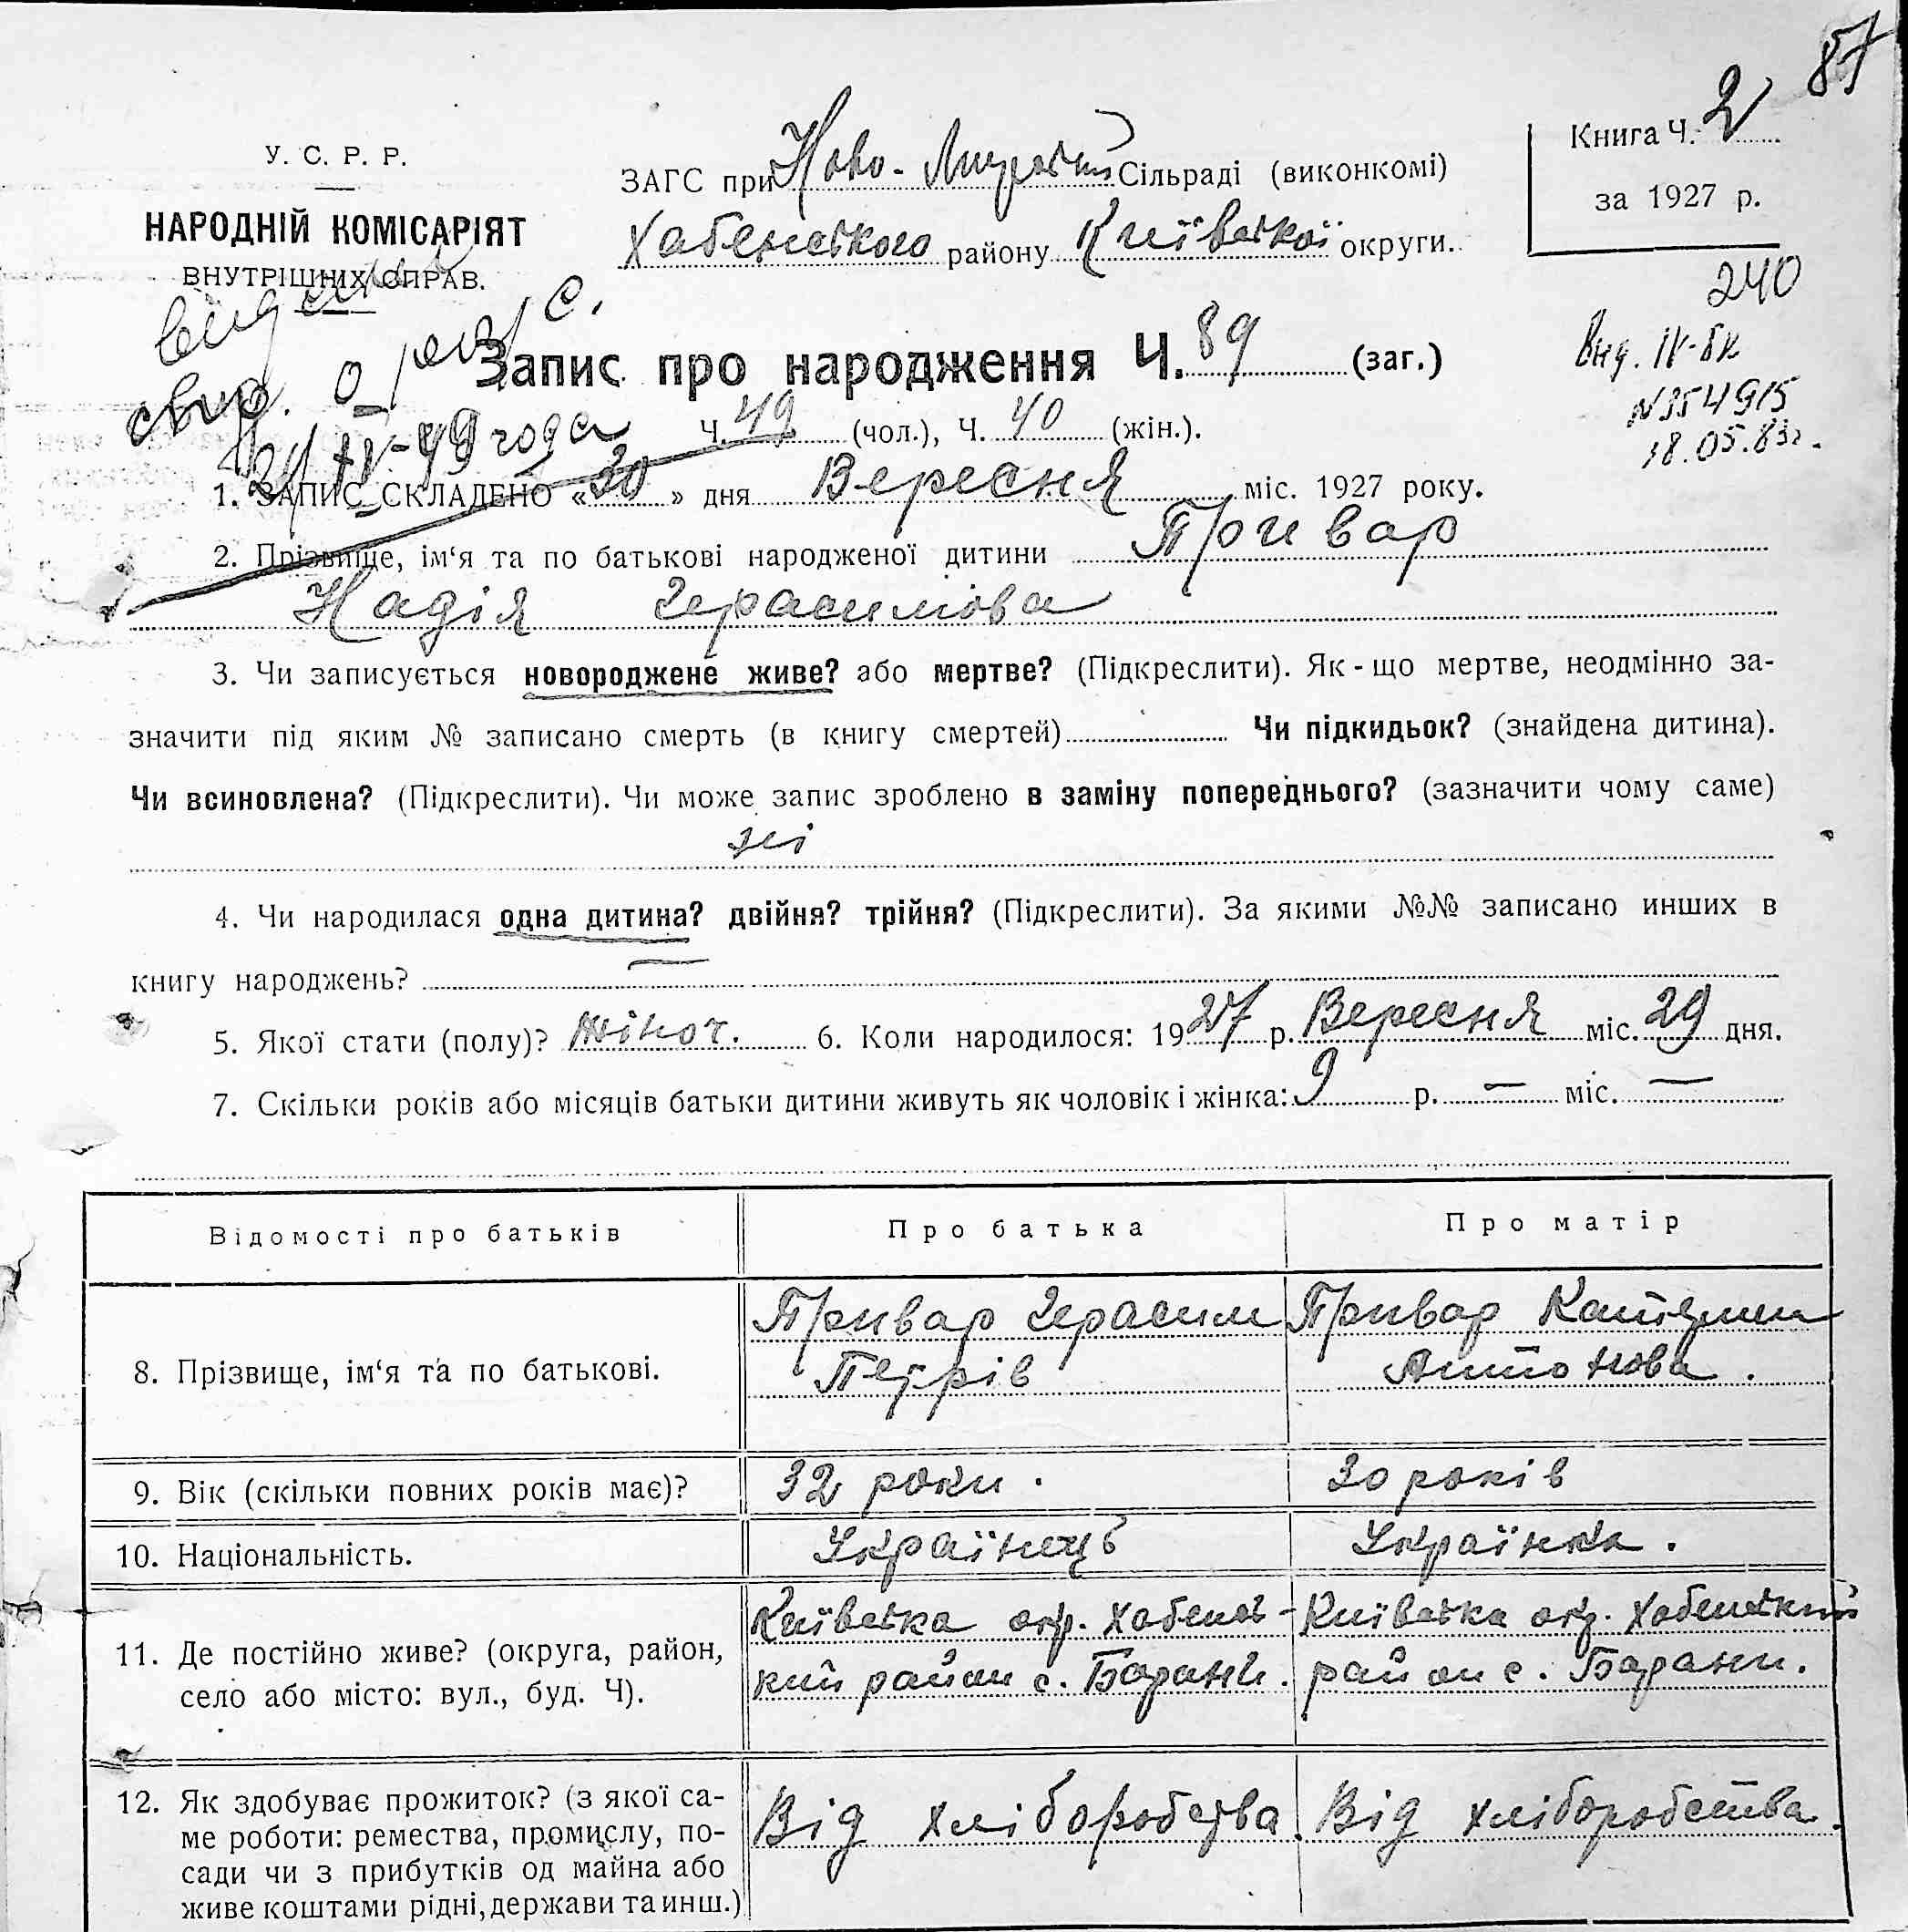 87
У. С. Р. Р.
НАРОДНІЙ КОМІСАРІЯТ
ВНУТРІШНІХ СПРАВ.
ЗАГС при Ново- Сільраді (виконкомі)
Хабенського району Київської округи.
Книга Ч. 2
за 1927 р.
240
Вид. IV-БК
N354915
18.05.83г.
свид. о
IV-49 года
Запис про народження Ч. 89 (заг.)
Ч. 49 (чол.), Ч. 40 (жін.).
1. ЗАПИС СКЛАДЕНО «30» дня Вересня міс. 1927 року.
2. Прізвище, ім‘я та по батькові народженої дитини Привар
Надія Герасимова
3. Чи записується новороджене живе? або мертве? (Підкреслити). Як-що мертве, неодмінно за-
значити під яким № записано смерть (в книгу смертей) Чи підкидьок? (знайдена дитина).
Чи всиновлена? (Підкреслити). Чи може запис зроблено в заміну попереднього? (зазначити чому саме)
ні
4. Чи народилася одна дитина? двійня? трійня? (Підкреслити). За якими №№ записано инших в
книгу народжень? —
5. Якої стати (полу)? жіноч. 6. Коли народилося: 1927 р. Вересня міс. 29 дня.
7. Скільки років або місяців батьки дитини живуть як чоловік і жінка: 9 р. — міс. —
Відомості про батьків Про батька Про матір
8. Прізвище, ім‘я та по батькові.
Привар Герасим
Петрів
Привар Катерина
Антонова.
9. Вік (скільки повних років має)? 32 роки. 30 років
10. Національність. Українець Українка.
11. Де постійно живе? (округа, район,
село або місто: вул., буд. Ч).
Київська окр. Хабенсь-
кий район с. Барани.
Київська окр. Хабенський
район с. Барани.
12. Як здобуває прожиток? (з якої са-
ме роботи: ремества, промислу, по-
сади чи з прибутків од майна або
живе коштами рідні, держави та инш.)
Від хліборобства.
Від хліборобства.